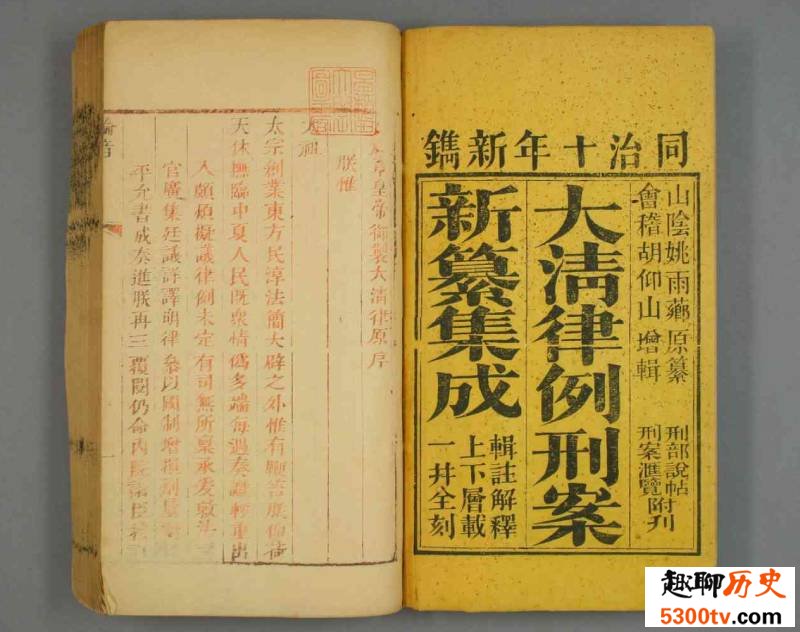 同治十年新鐫
山陰姚雨薌原纂
會稽胡仰山增輯
刑部說帖
刑案滙覽附刊
大清律例刑案
新纂集成
輯註解釋
上下層載
一并全刻
皇帝御製大清律原序
朕惟
太祖
太宗創業東方民淳法簡大辟之外惟有鞭笞朕仰荷
天休撫臨中夏人民既衆情僞多端每遇奏讞輕重出
入頗煩擬議律例未定有司無所稟承爰敕
官廣集廷議詳譯明律參以國制增損剤量
平允書成奏進朕再三覆閱仍命內院諸臣
趣聊历史
5300tv.com